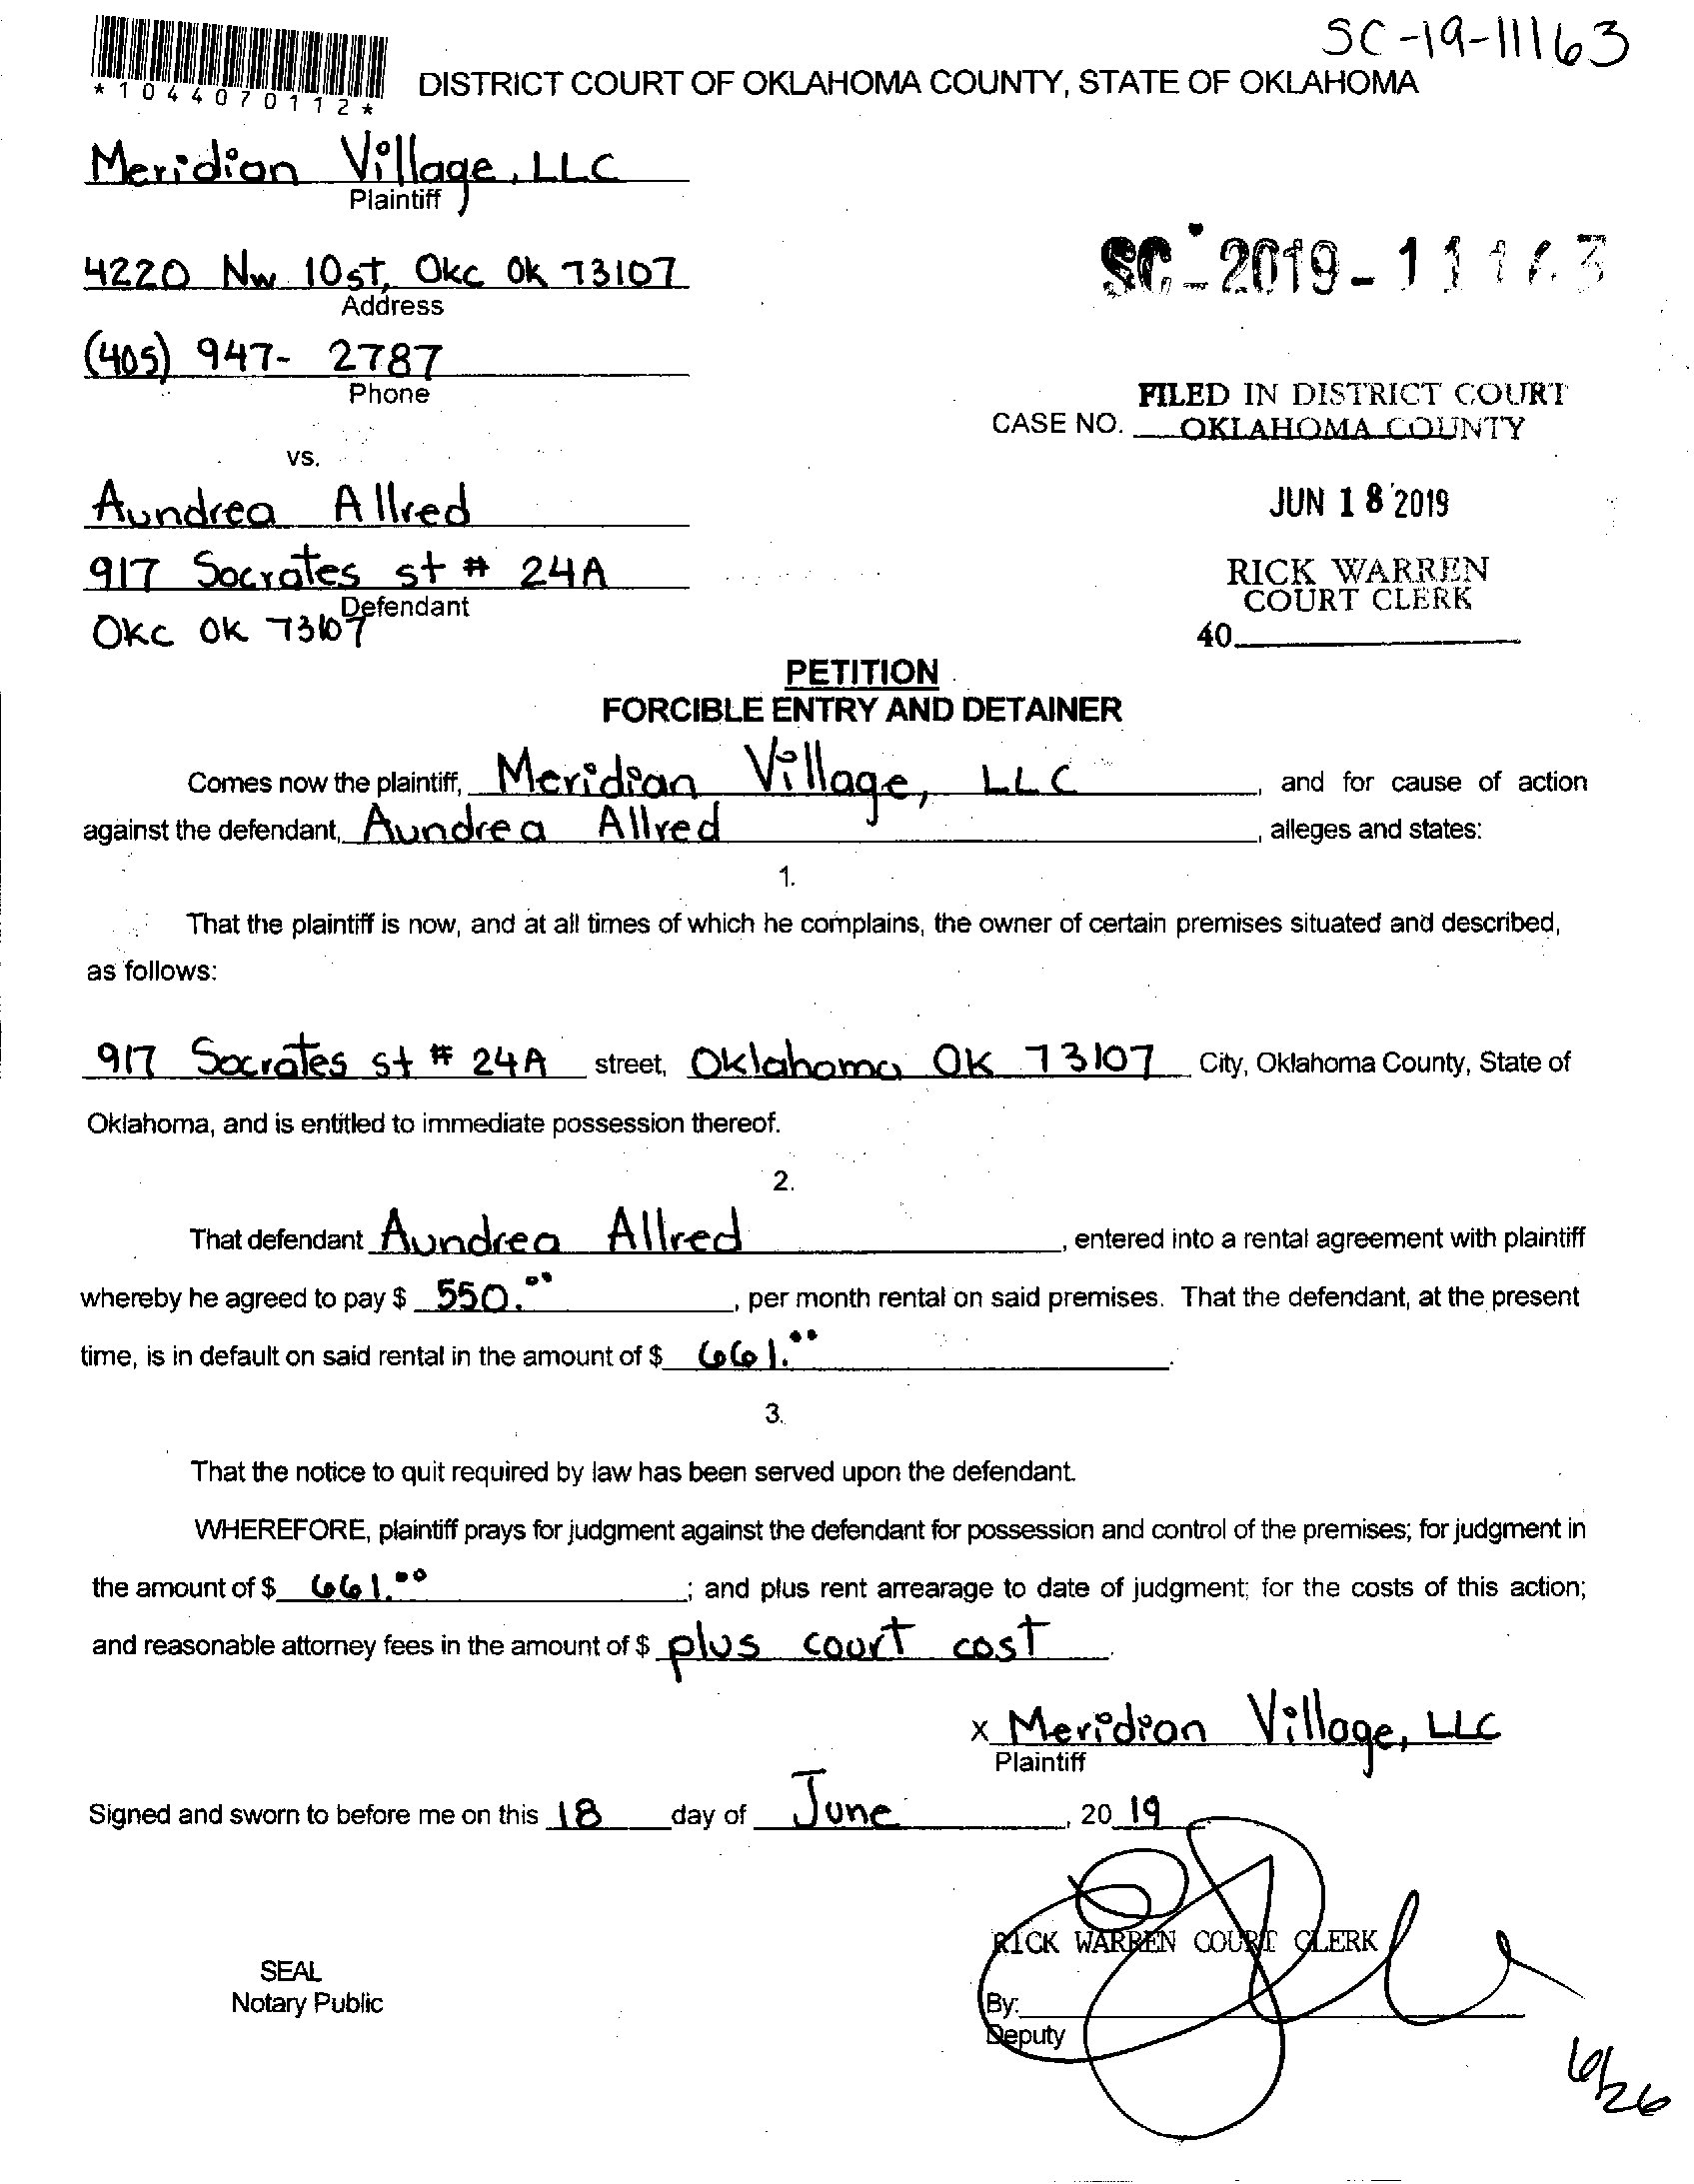 SC-19-11163
*1044070112*
DISTRICT COURT OF OKLAHOMA COUNTY, STATE OF OKLAHOMA
Meridian Village, LLC
Plaintiff
4220 Nw 10st, Okc Ok 73107
Address
SC-2019-11163
(405) 947-2787
Phone
FILED IN DISTRICT COURT
CASE NO. OKLAHOMA COUNTY
vs.
Aundrea Allred
JUN 18 2019
917 Socrates st # 24A
Defendant
OKC OK 73107
RICK WARREN
COURT CLERK
40
PETITION
FORCIBLE ENTRY AND DETAINER
Comes now the plaintiff, Meridian Village, LLC, and for cause of action
against the defendant, Aundrea Allred, alleges and states:
1.
That the plaintiff is now, and at all times of which he complains, the owner of certain premises situated and described,
as follows:
917 Socrates st # 24A street, Oklahoma OK 73107 City, Oklahoma County, State of
Oklahoma, and is entitled to immediate possession thereof.
2.
That defendant Aundrea Allred, entered into a rental agreement with plaintiff
whereby he agreed to pay $ 550.00, per month rental on said premises. That the defendant, at the present
time, is in default on said rental in the amount of $ 661.00.
3.
That the notice to quit required by law has been served upon the defendant.
WHEREFORE, plaintiff prays for judgment against the defendant for possession and control of the premises; for judgment in
the amount of $ 661.00; and plus rent arrearage to date of judgment; for the costs of this action;
and reasonable attorney fees in the amount of $ plus court cost.
x Meridian Village, LLC
Plaintiff
Signed and sworn to before me on this 18 day of June, 2019
RICK WARREN COURT CLERK
SEAL
Notary Public
By:
Deputy
6/26